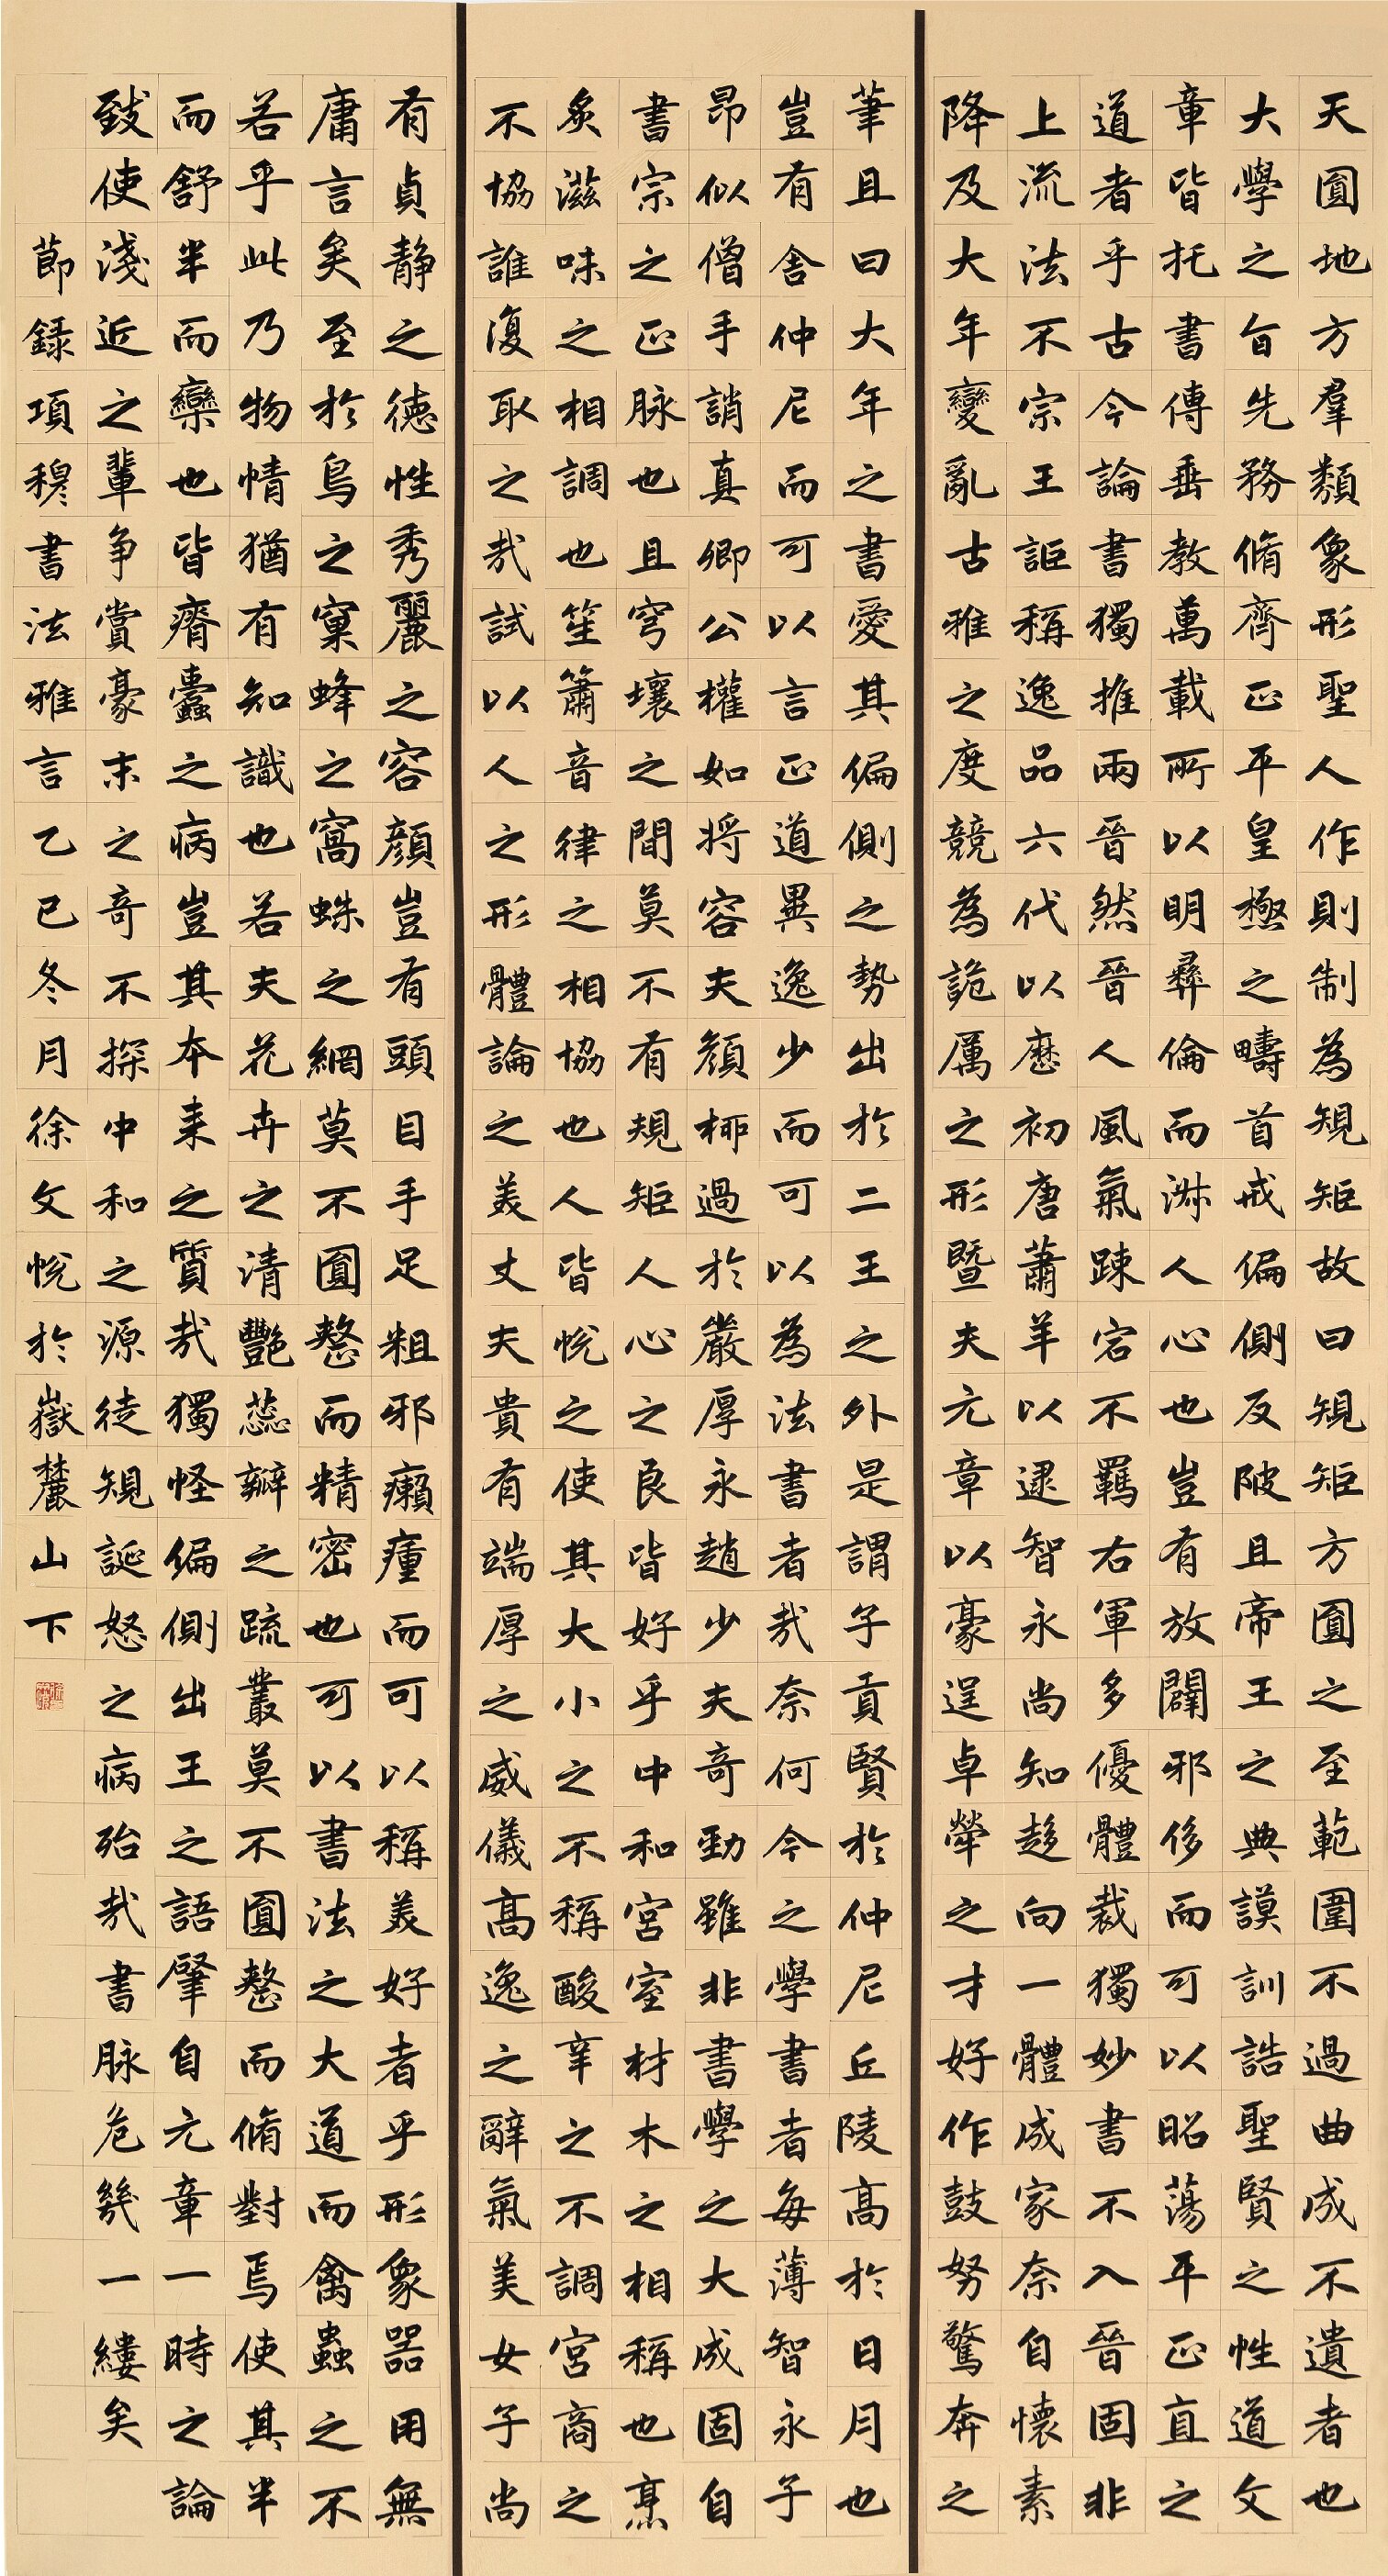 天圓地方羣類象形聖人作則制為規矩故曰規矩方圓之至範圍不過曲成不遺者也
大學之旨先務脩齊正平皇極之疇首戒偏側反陂且帝王之典謨訓誥聖賢之性道文
章皆托書傳垂教萬載所以明彝倫而淑人心也豈有放闢邪侈而可以昭蕩平正直之
道者乎古今論書獨推兩晉然晉人風氣踈宕不羈右軍多優體裁獨妙書不入晉固非
上流法不宗王詎稱逸品六代以歷初唐蕭羊以逮智永尚知趍向一體成家奈自懷素
降及大年變亂古雅之度競為詭厲之形暨夫元章以豪逞卓犖之才好作鼓努驚奔之
筆且曰大年之書愛其偏側之勢出於二王之外是謂子貢賢於仲尼丘陵高於日月也
豈有舍仲尼而可以言正道異逸少而可以為法書者哉奈何今之學書者每薄智永子
昂似僧手誚真卿公權如將容夫顏柳過於嚴厚永趙少夫奇勁雖非書學之大成固自
書宗之正脉也且穹壤之間莫不有規矩人心之良皆好乎中和宮室材木之相稱也烹
炙滋味之相調也笙簫音律之相協也人皆悅之使其大小之不稱酸辛之不調宮商之
不協誰復取之哉試以人之形體論之美丈夫貴有端厚之威儀高逸之辭氣美女子尚
有貞靜之德性秀麗之容顏豈有頭目手足粗邪癩瘇而可以稱美好者乎形象器用無
庸言矣至於鳥之窠蜂之窩蛛之網莫不圓整而精密也可以書法之大道而禽蟲之不
若乎此乃物情猶有知識也若夫花卉之清艷蕊瓣之疏叢莫不圓整而脩對焉使其半
而舒半而欒也皆瘠蠹之病豈其本來之質哉獨怪偏側出王之語肇自元章一時之論
致使淺近之輩争賞豪末之奇不探中和之源徒規誕怒之病殆哉書脉危幾一縷矣
節錄項穆書法雅言乙巳冬月徐文悅於嶽麓山下